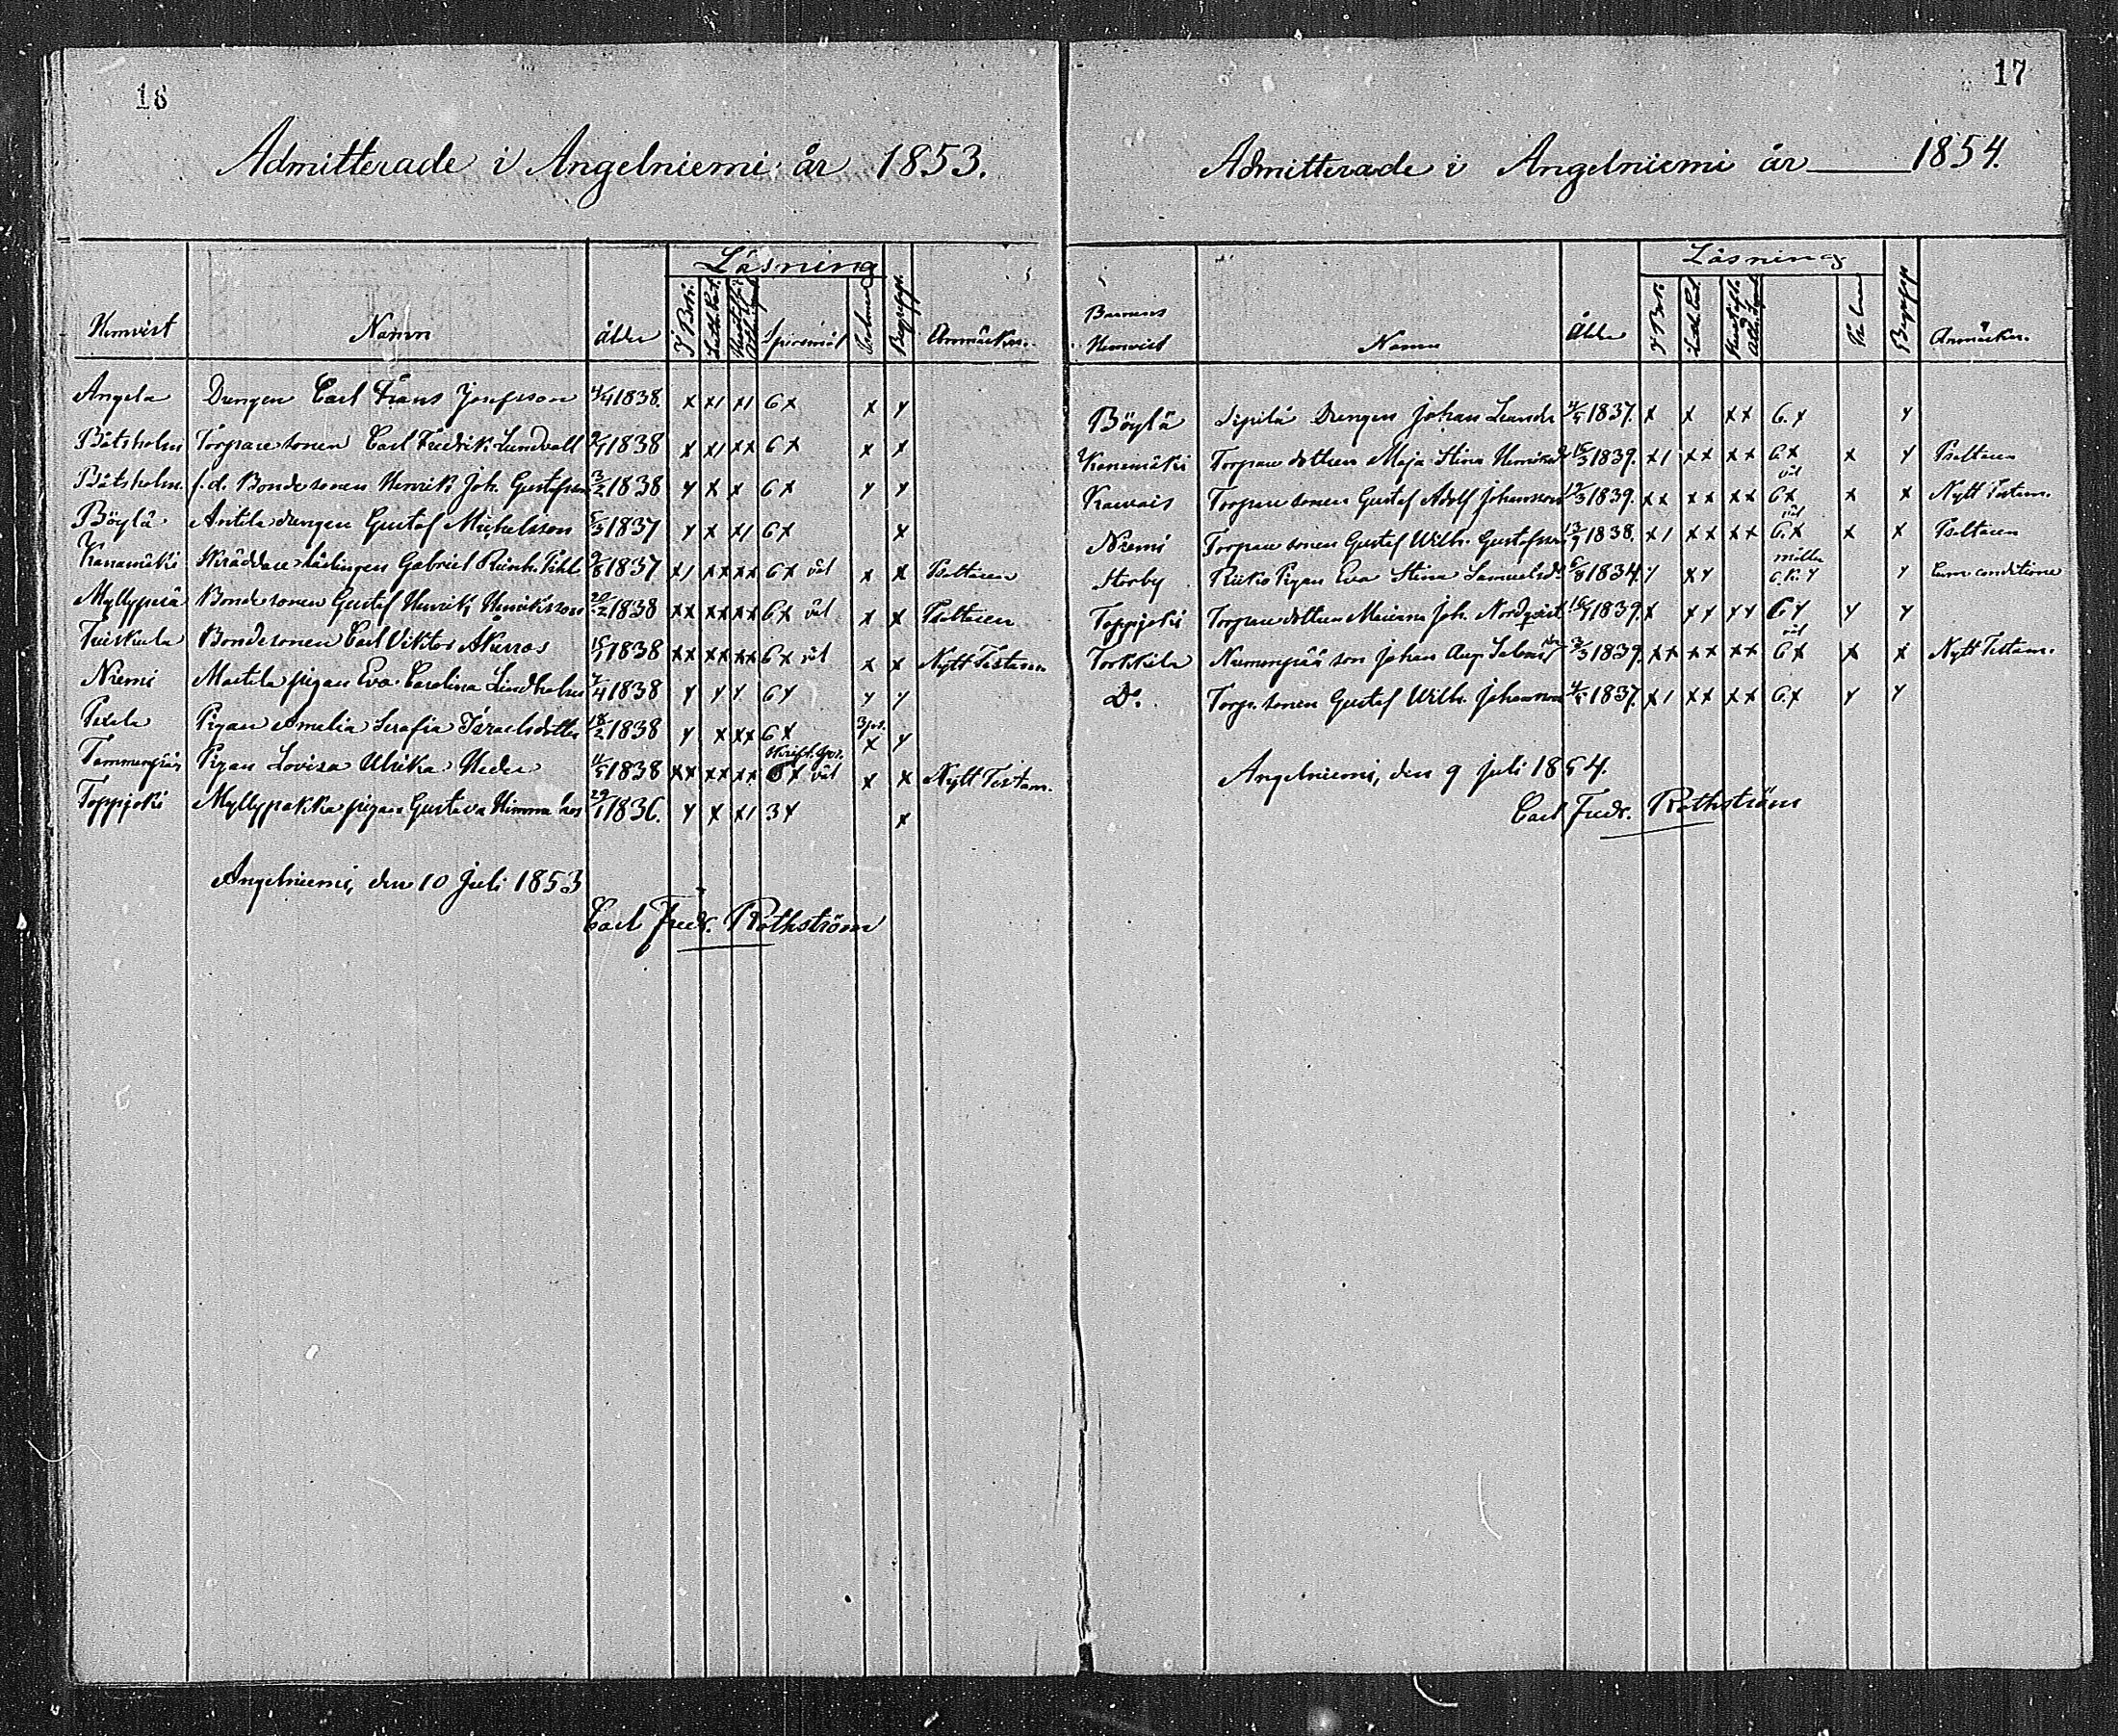 16
Admitterade i Angelniemi år 1853.
Läsning
Hemvist Namn ålder I Bok. Spörsmål Begrepp. Anmärkn.
Angela Drengen Carl Frans Josefsson 4/4 1838. x x1 x1 6x x y
Båtsholm Torpare sonen Carl Fredrik Lundvall 1838 x x1 xx 6x x x
Båtsholm. f.d. Bonde sonen Henrik Joh. Gustafsson 3/2 1838 y x x 6x y y
Böylä Antila drengen Gustaf Michelsson 5/3 1837 y x x1 6x x
Kanamäki Skräddare lärlingen Gabriel Reinh. Pihl 9/8 1837 x1 xx xx 6x väl x x Psaltaren
Myllyperä Bonde sonen Gustaf Henrik Henriksson 20/2 1838 xx xx xx 6x väl x x Psaltaren
Bondesonen Carl Viktor Åkerros 15/1 1838 xx xx xx 6x väl x x Nytt Testam.
Niemi Martila pigan Eva Carolina Lindholm 7/4 1838 y y y 6y y y
Pexala Pigan Amelia Serafia Israelsdotter 18/2 1838 y x xx 6x x y
Tammenpää Pigan Lovisa Ulrika Heder 11/5 1838 xx xx xx 6x väl x x Nytt Testam.
Toppjoki Myllypakka pigan Gustava Himmanros 29/1 1836. y x x1 3x x
Angelniemi, den 10 Juli 1853
Carl Fredr. Rothström
17
Admitterade i Angelniemi år 1854.
Läsning
Barnens
Hemvist Namn Ålder I Bok. Begrepp Anmärkn.
Böylä Sipilä Drengen Johan Leander 4/5 1837. x x xx 6.x y
Kanamäki Torpare dottren Maja Stina Henriksdr 15/3 1839. x1 xx xx 6x x y Psaltaren
väl
Torpare sonen Gustaf Adolf Johansson 12/3 1839. xx xx xx 6x x x Nytt Testam.
väl
Niemi Torpare sonen Gustaf Wilh. Gustafsson 13/9 1838. x1 xx xx 6.x x x Psaltaren
Storby Riiko Pigan Eva Stina Samuelsdr 6/8 1834. y xy y Cum conditione
Toppjoki Torpare dottren Mariana Joh. Nordqvist 16/4 1839. x xy yy 6y y y
väl
Torkkila Nummenpää son Johan Aug. 3/3 1839. xx xx xx 6x x x Nytt Testam.
Do. Torp. sonen Gustaf Wilh. Johansson 4/5 1837. x1 xx xx 6.x y y
Angelniemi, den 9 Juli 1854.
Carl Fredr. Rothström